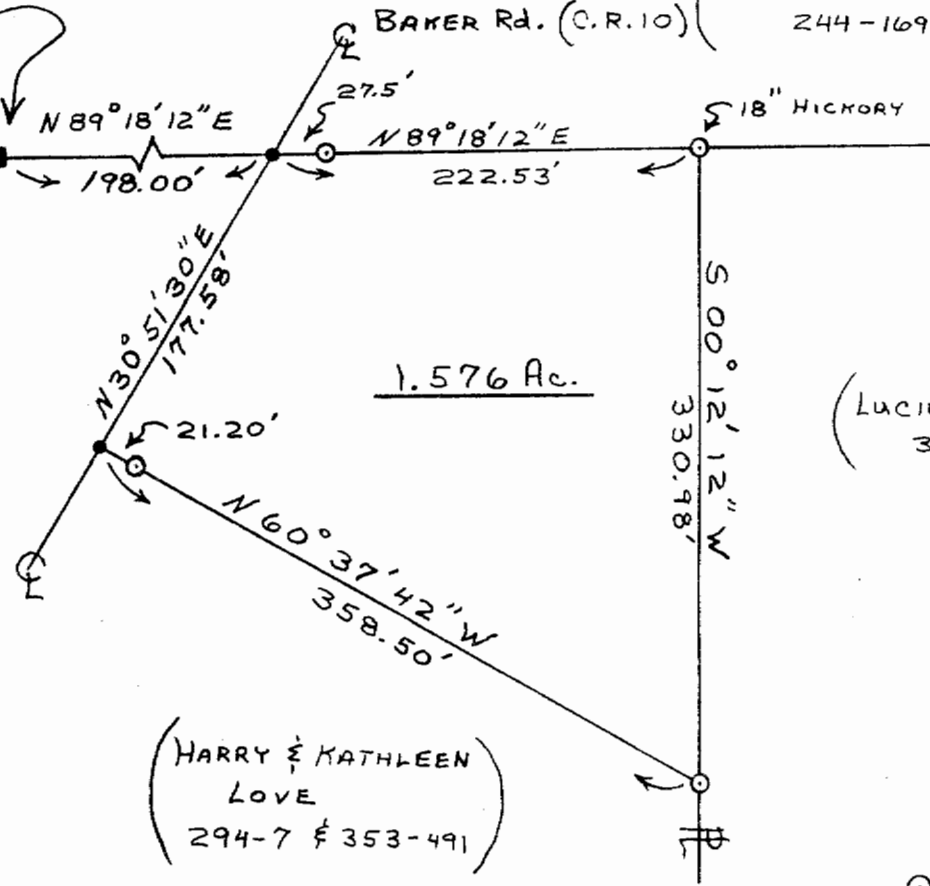 BAKER Rd. (C.R.10)
244-169
27.5'
N 89° 18' 12" E
198.00'
N 89° 18' 12" E
222.53'
18" HICKORY
N 30° 51' 30" E
177.58'
1.576 Ac.
S 00° 12' 12" W
330.98'
21.20'
N 60° 37' 42" W
358.50'
(HARRY & KATHLEEN
LOVE
294-7 & 353-491)